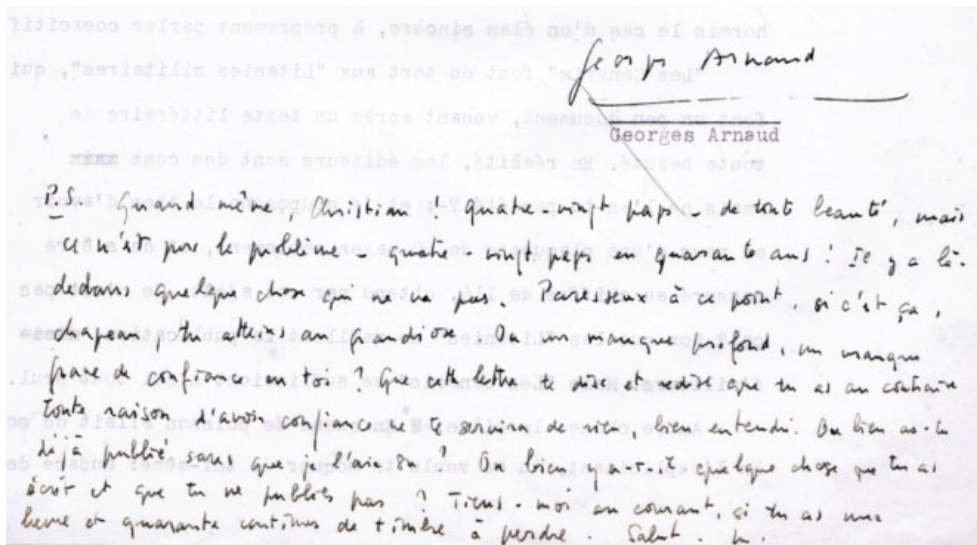 Georges Arnaud
Georges Arnaud
P.S. Quand même, Christian ! quatre-vingt pages - de toute beauté, mais
ce n'est pas le problème - quatre-vingt pages en quarante ans ! Il y a là-
dedans quelque chose qui ne va pas. Paresseux à ce point, si c'est ça,
chapeau, atteins au grandiose. Ou un manque profond, un manque
grave de confiance en toi ? Que cette lettre te dise et redise que tu as au contraire
toute raison d'avoir confiance ne te servira de rien, bien entendu. Ou bien as-tu
déjà publié sans que je l'aie su ? Ou bien y a-t-il quelque chose que tu as
écrit et que tu ne publies pas ? Tiens-moi au courant, si tu as une
heure et quarante centimes de timbre à perdre. Salut.